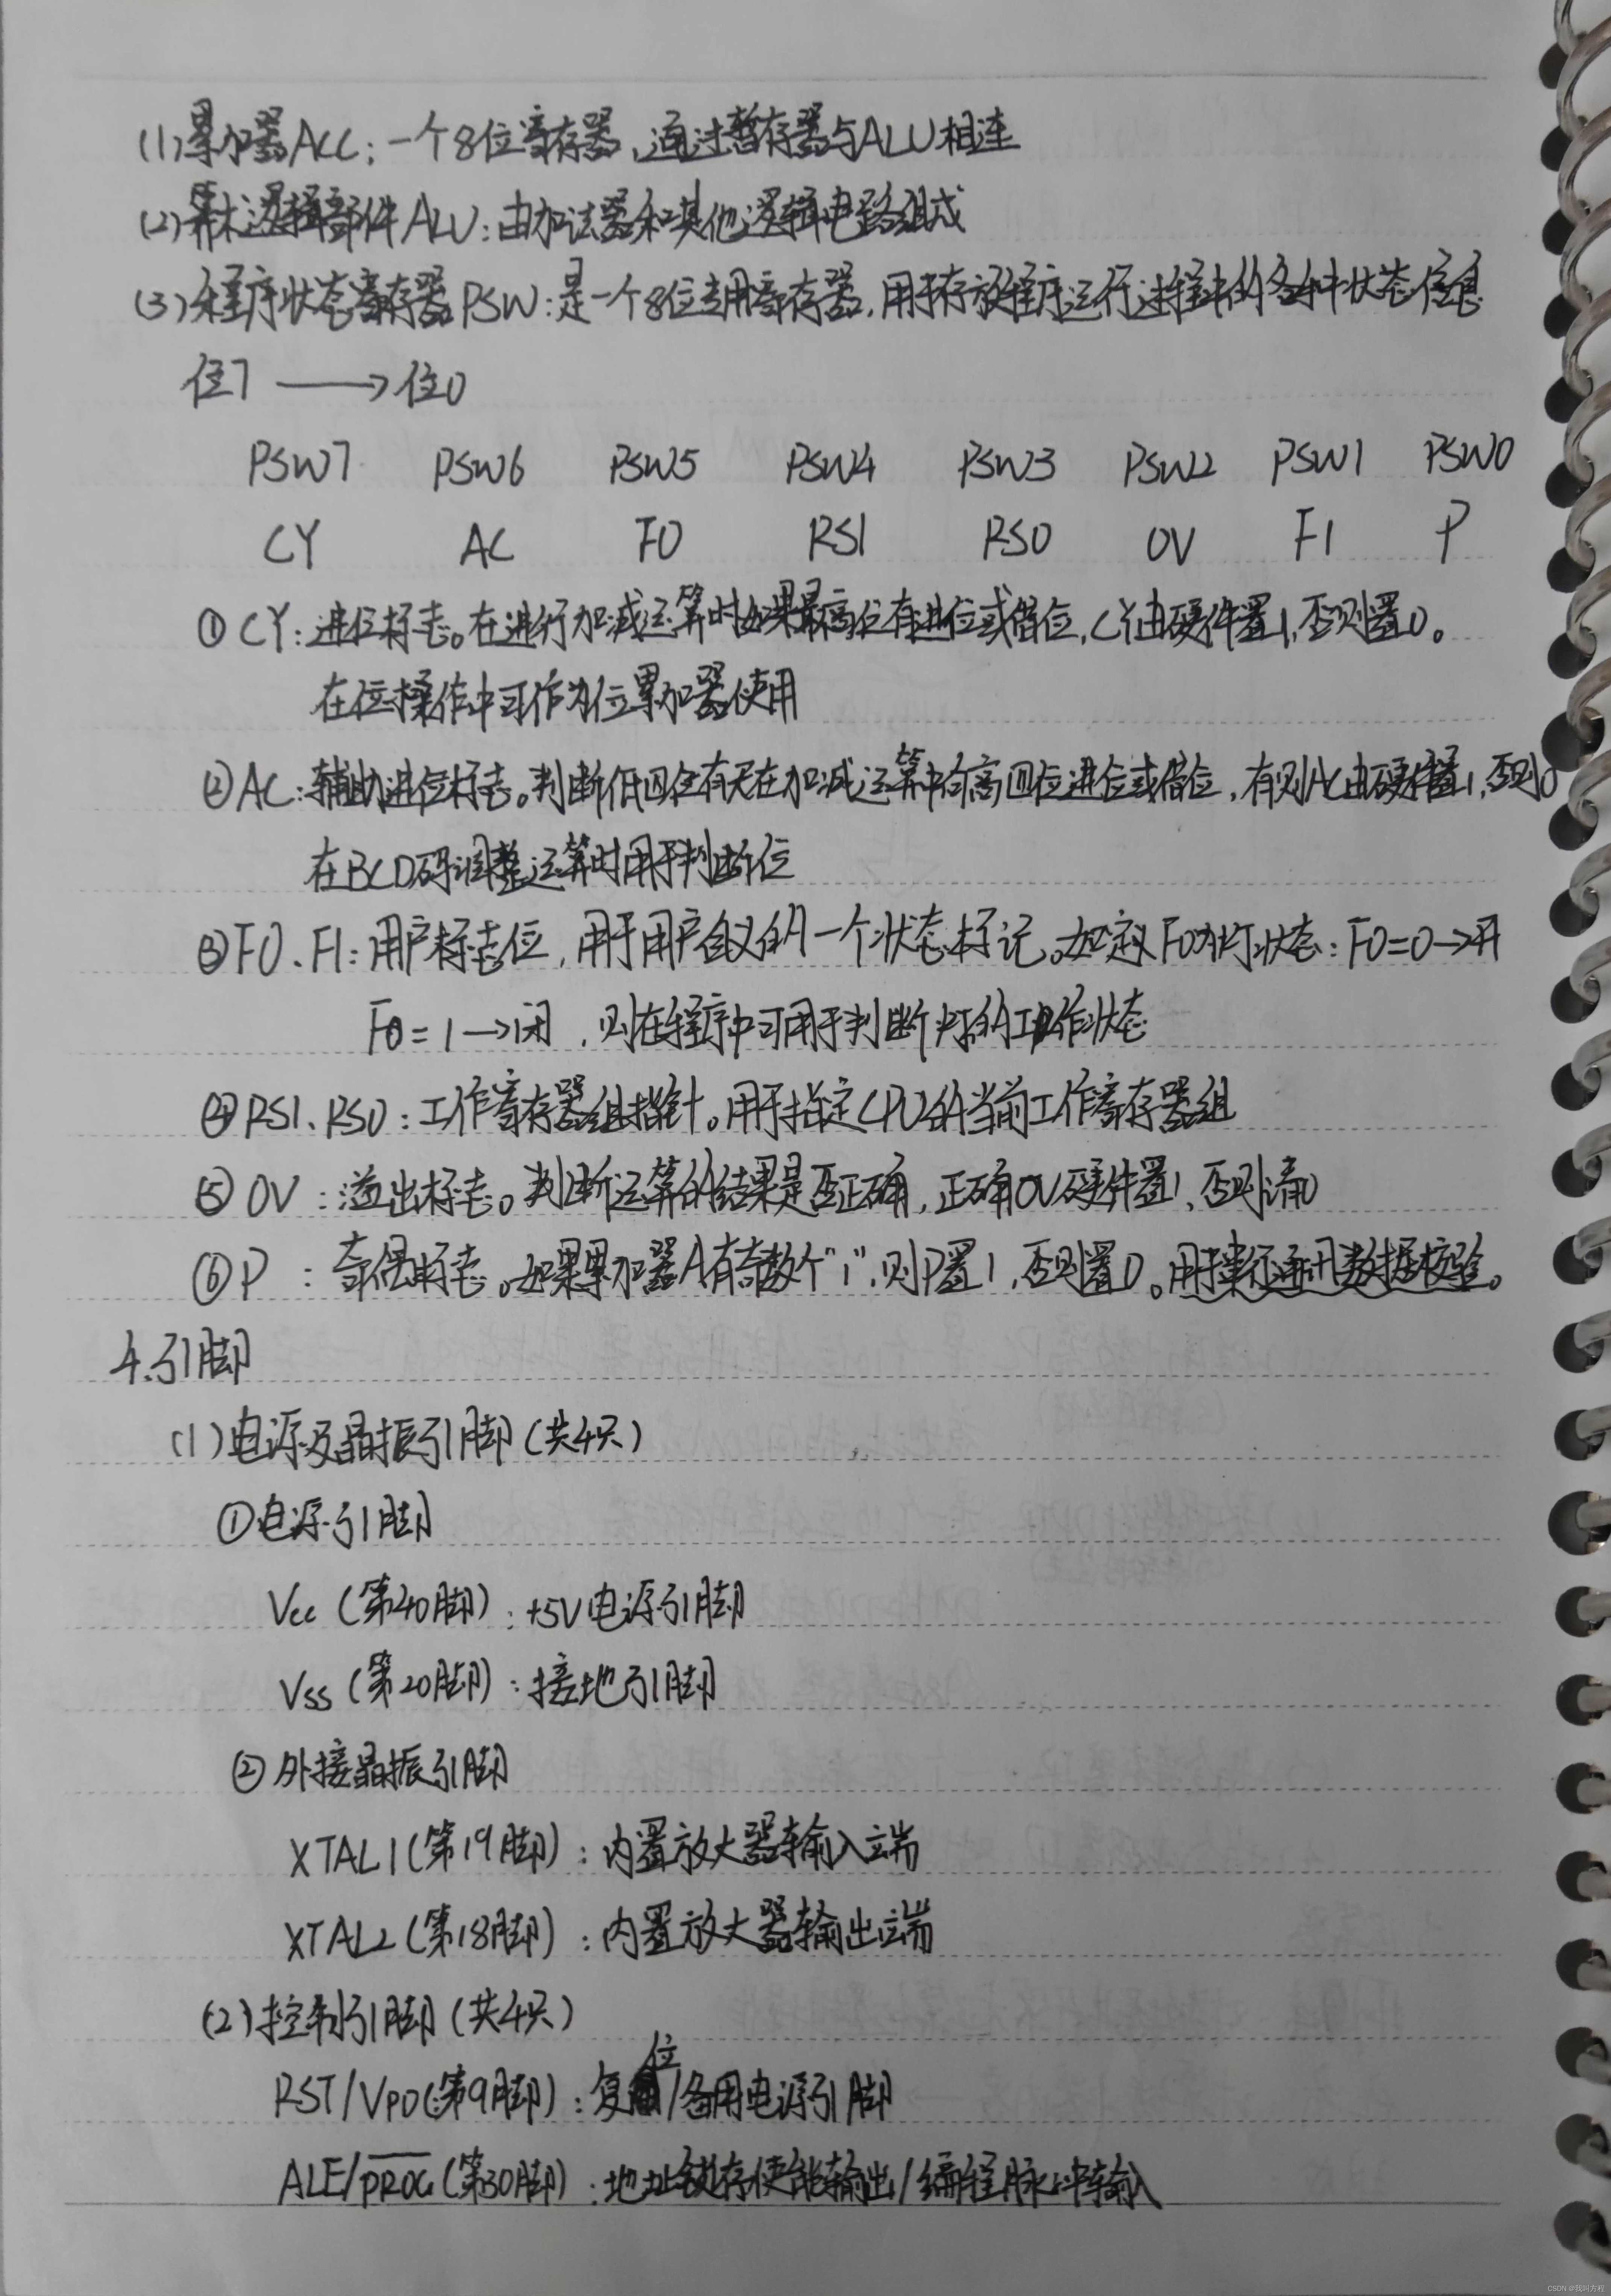 (1)累加器ACC:一个8位寄存器,通过暂存器与ALU相连
(2)算术逻辑部件ALU:由加法器和其他逻辑电路组成
(3)程序状态寄存器PSW:是一个8位专用寄存器,用于存放程序运行过程中的各种状态信息
位7 ⟶ 位0
PSW7 PSW6 PSW5 PSW4 PSW3 PSW2 PSW1 PSW0
CY AC F0 RS1 RS0 OV F1 P
①CY:进位标志。在进行加减运算时如果最高位有进位或借位,CY由硬件置1,否则置0。
在位操作中可作为位累加器使用
②AC:辅助进位标志。判断低四位有无在加减运算中向高四位进位或借位,有则AC由硬件置1,否则0
在BCD码调整运算时用于判断位
③F0、F1:用户标志位,用于用户自定义的一个状态标记。如定义F0为灯状态:F0=0→开
F0=1→闭,则在程序中可用于判断灯的工作状态
④RS1、RS0:工作寄存器组指针。用于指定CPU的当前工作寄存器组
⑤OV:溢出标志。判断运算的结果是否正确,正确OV硬件置1,否则清0
⑥P:奇偶标志。如果累加器A有奇数个"1",则P置1,否则置0。用于串行通讯数据校验。
4.引脚
(1)电源及晶振引脚(共4只)
①电源引脚
Vcc(第40脚):+5V电源引脚
Vss(第20脚):接地引脚
②外接晶振引脚
XTAL1(第19脚):内置放大器输入端
XTAL2(第18脚):内置放大器输出端
(2)控制引脚(共4只)
RST/VPD(第9脚):复位/备用电源引脚
ALE/P̅R̅O̅G̅(第30脚):地址锁存使能输出/编程脉冲输入
CSDN @我叫方程